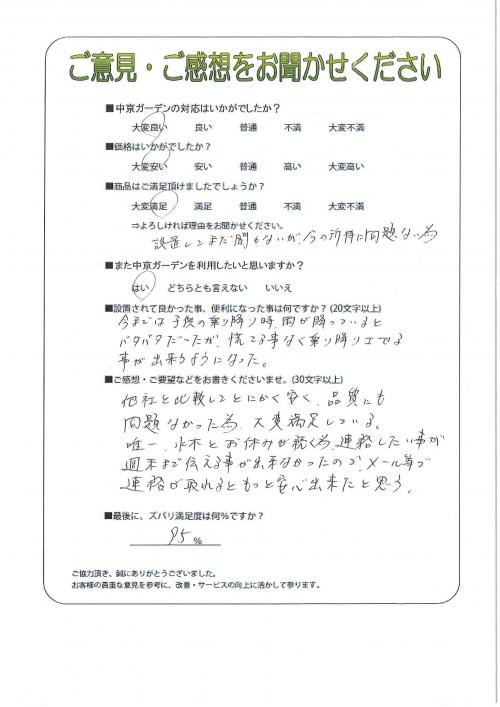 ご意見・ご感想をお聞かせください
■中京ガーデンの対応はいかがでしたか？
大変良い 良い 普通 不満 大変不満
■価格はいかがでしたか？
大変安い 安い 普通 高い 大変高い
■商品はご満足頂けましたでしょうか？
大変満足 満足 普通 不満 大変不満
⇒よろしければ理由をお聞かせください。
設置してまだ間もないが、今の所特に問題ない為
■また中京ガーデンを利用したいと思いますか？
はい どちらとも言えない いいえ
■設置されて良かった事、便利になった事は何ですか？(20文字以上)
今までは子供の乗り降り時、雨が降っていると
バタバタだったが、慌てる事なく乗り降りできる
事が出来るようになった。
■ご感想・ご要望などをお書きくださいませ。(30文字以上)
他社と比較してとにかく安く、品質にも
問題なかった為、大変満足している。
唯一、水木とお休みが続く為、連絡したい事が
週末まで伝える事が出来なかったので、メール等で
連絡が取れるともっと安心出来たと思う。
■最後に、ズバリ満足度は何％ですか？
95 %
ご協力頂き、誠にありがとうございました。
お客様の貴重な意見を参考に、改善・サービスの向上に活かして参ります。